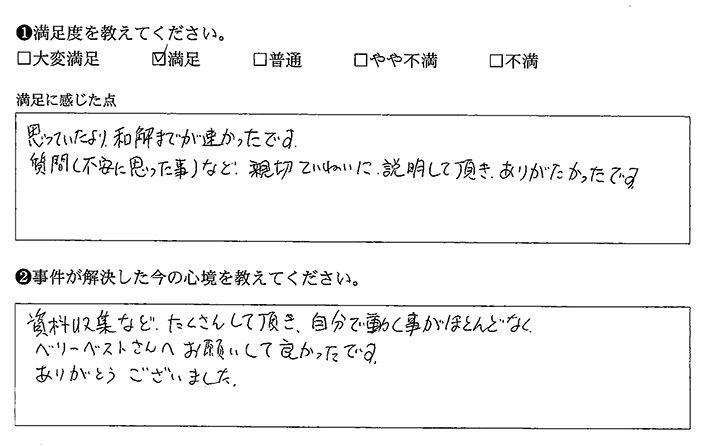 ❶満足度を教えてください。
□大変満足 ☑満足 □普通 □やや不満 □不満
満足に感じた点
思っていたより、和解までが速かったです。
質問(不安に思った事)など、親切ていねいに、説明して頂き、ありがたかったです。
❷事件が解決した今の心境を教えてください。
資料収集など、たくさんして頂き、自分で動く事がほとんどなく、
ベリーベストさんへお願いして良かったです。
ありがとうございました。